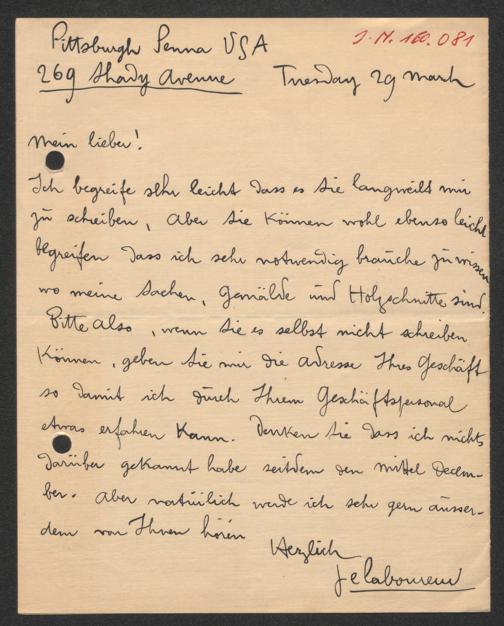 Pittsburgh Penna USA
J.N. 160.081
269 Shady Avenue
Tuesday 29 march
Mein lieber!
Ich begreife sehr leicht dass es Sie langweilt mir
zu schreiben, aber Sie können wohl ebenso leicht
begreifen dass ich sehr notwendig brauche zu wissen
wo meine Sachen, Gemälde und Holzschnitte sind.
Bitte also, wenn Sie es selbst nicht schreiben
können, geben Sie mir die adresse Ihres Geschäft
so damit ich durch Ihrem Geschäftspersonal
etwas erfahren kann. Denken Sie dass ich nichts
darüber gekannt habe seitdem den mittel Decem-
ber. Aber natürlich werde ich sehr gern ausser-
dem von Ihnen hören
Herzlich
J e Laboureur